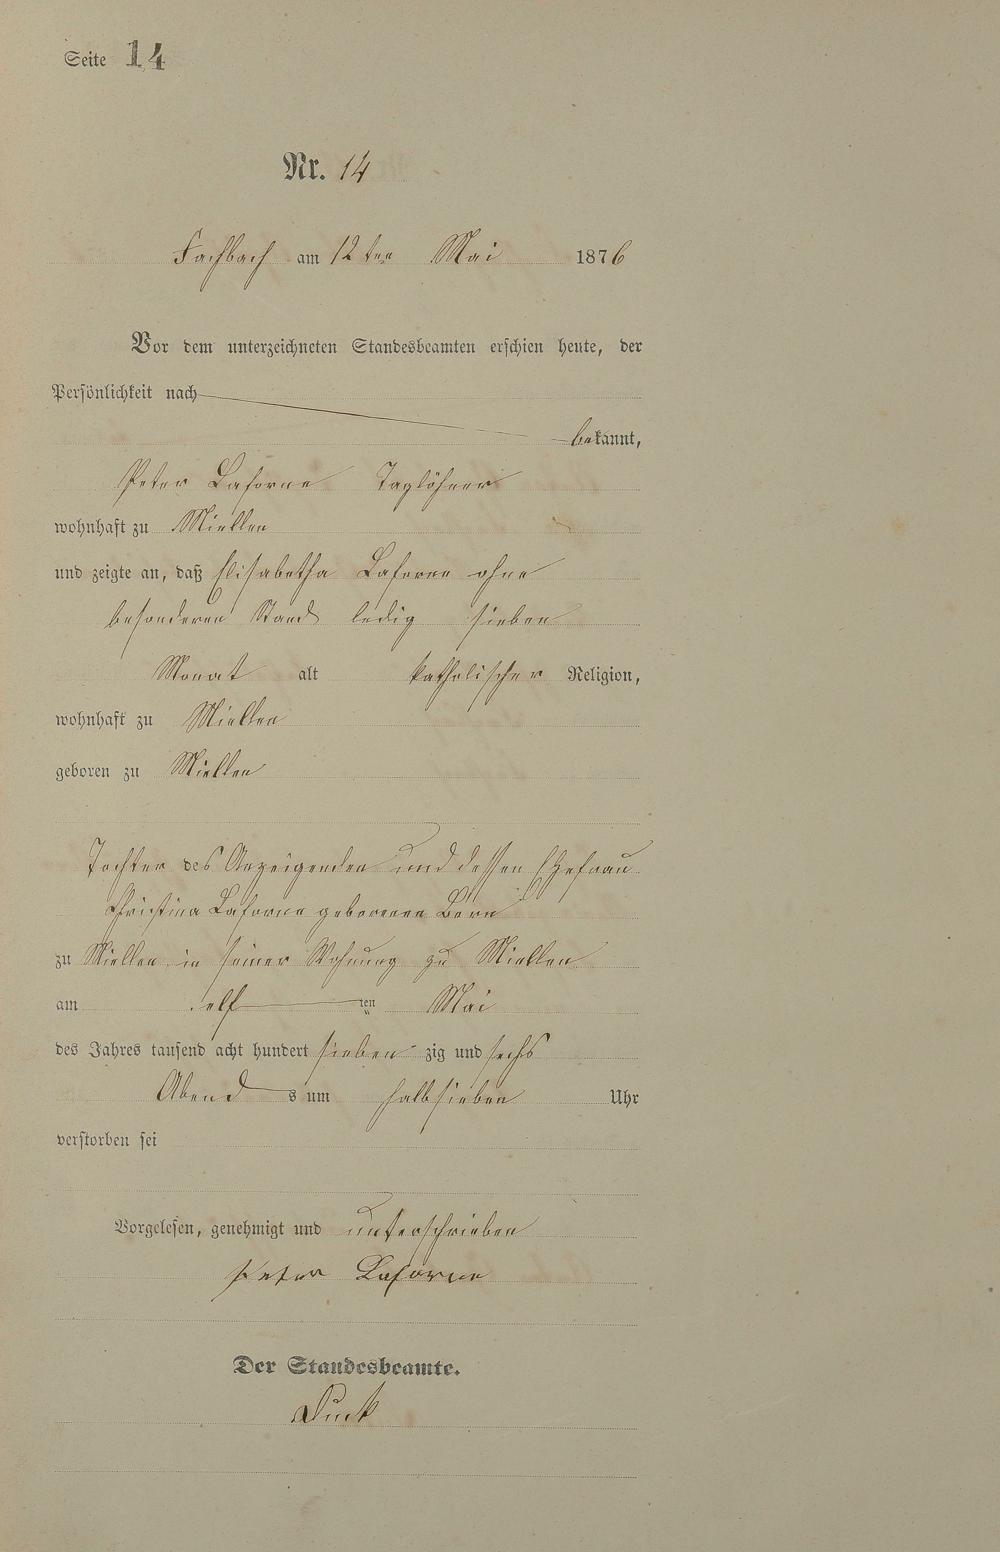 Seite 14
Nr. 14
Fachbach am 12ten Mai 1876
Vor dem unterzeichneten Standesbeamten erschien heute, der
Persönlichkeit nach
bekannt,
Peter Laforne Taglöhner
wohnhaft zu Miellen
und zeigte an, daß Elisabetha Laforne ohne
besonderen Stand ledig sieben
Monat alt katholischer Religion,
wohnhaft zu Miellen
geboren zu Miellen
Tochter des Anzeigenden und dessen Ehefrau
Christina Laforne geborenen Born
zu Miellen in seiner Wohnung zu Miellen
am elf ten Mai
des Jahres tausend acht hundert sieben zig und sechs
Abend s um halbsieben Uhr
verstorben sei
Vorgelesen, genehmigt und unterschrieben
Peter Laforne
Der Standesbeamte.